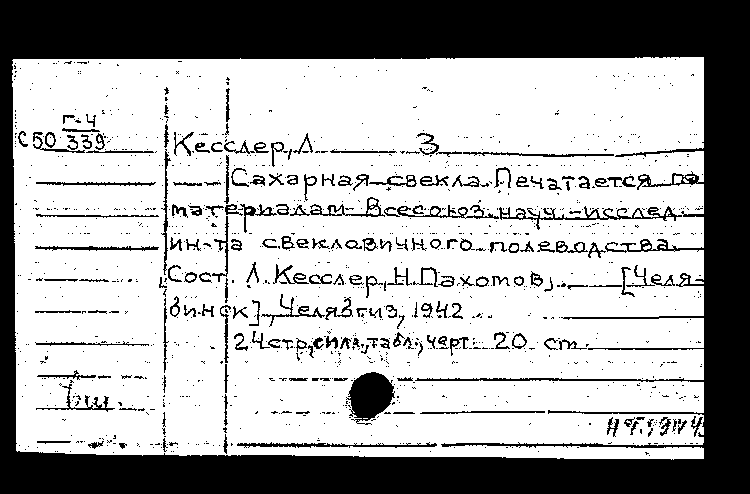 Г-4
С50 339
Кесслер, Л. 3
Сахарная свекла. Печатается по
материалам Всесоюз. науч.-исслед.
ин-та свекловичного полеводства.
Сост. Л. Кесслер, Н. Пахотов,. [Челя-
бинск], Челябгиз, 1942
24 стр., с илл., табл., черт. 20 см.